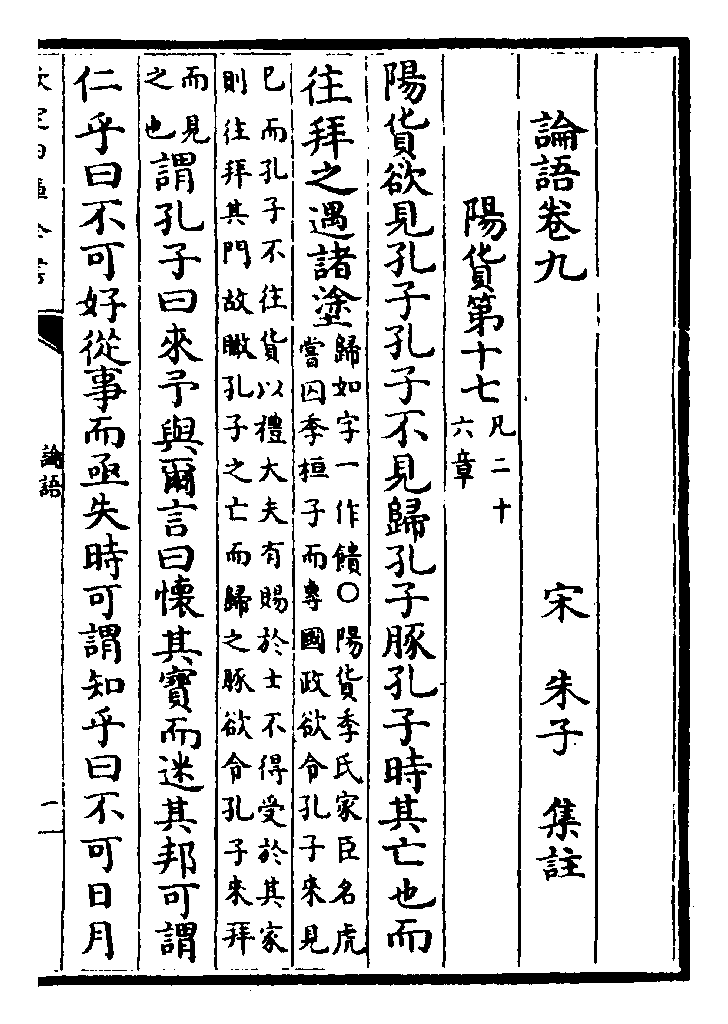 論語卷九 宋 朱子 集註
陽貨第十七
凡二十
六章
陽貨欲見孔子孔子不見歸孔子豚孔子時其亡也而
往拜之遇諸塗
歸如字一作饋○陽貨季氏家臣名虎
嘗囚季桓子而專國政欲令孔子來見
巳而孔子不往貨以禮大夫有賜於士不得受於其家
則往拜其門故瞰孔子之亡而歸之豚欲令孔子來拜
而見
之也
謂孔子曰來予與爾言曰懷其寶而迷其邦可謂
仁乎曰不可好從事而亟失時可謂知乎曰不可日月
論語
一